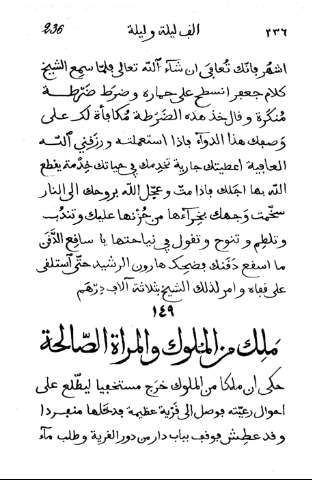 236 الف ليلة وليلة ٢٣٦
اشهر فانك تُعافى ان شآء الله تعالى فلما سمع الشيخ
كلام جعفر انسطح على حماره وضرط ضَرْطة
مُنكَرة وقال خذ هذه الضَرْطة مكافأة لك على
وَصفِك هذا الدوآء فاذا استعملته ورزقني الله
العافية اعطيتك جارية تخدمك في حياتك خِدْمة يقطع
الله بها اجلك فاذا متّ وعجّل الله بروحك الى النار
سخّمت وَجهك بخراءها من حُزنها عليك وتندُب
وتلطِم وتنوح وتقول في نياحتها يا ساقع الذَقن
ما اسقع ذَقنك فضحِك هارون الرشيد حتّى استلقى
على قفاه وامر لذلك الشيخ بثلاثة آلاف دِرْهم
١٤٩
مَلِك من المُلوك والمراة الصّالحة
حكى ان ملكا من الملوك خرج مستخفيا ليطّلع على
احوال رعيّته فوصل الى قَرْية عظيمة فدخلها منفردا
وقد عطِش فوقف بباب دار من دور القرية وطلب مآء